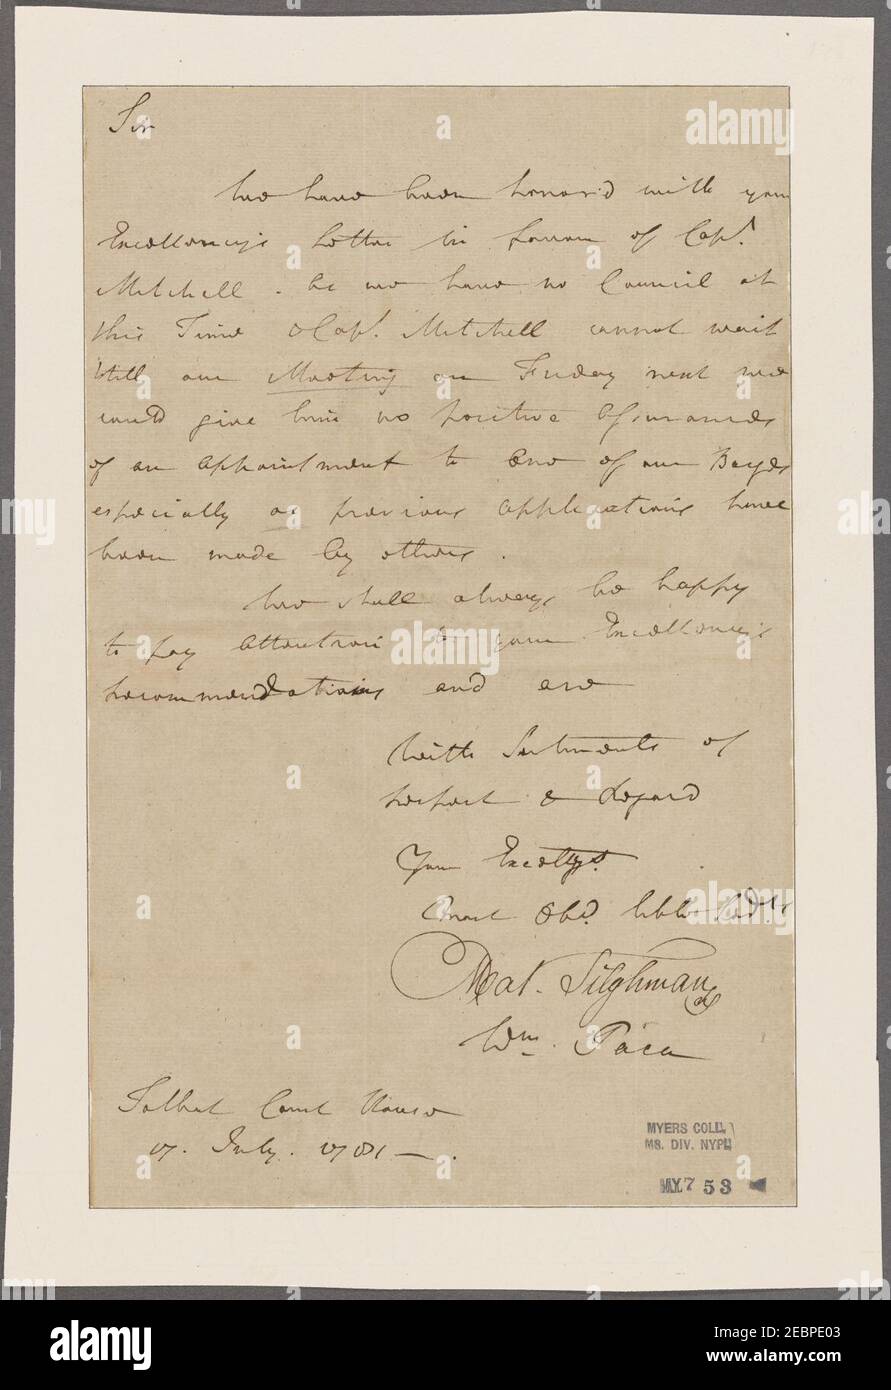 Sir
We have been honor'd with your
Excellency's Letter in favour of Capt.
Mitchell. As we have no Council at
this Time & Capt. Mitchell cannot wait
till our Meeting on Friday next we
could give him no positive Assurances
of an Appointment to one of our Barges
especially as previous applications have
been made by others.
We shall always be happy
to pay Attention to your Excellency's
Recommendations and are
With Sentiments of
Respect & Regard
Your Excellys.
most Obd. hble Servts
Mat. Tilghman
Wm. Paca
Talbot Court House
17. July. 1781 —.
MYERS COLL.
MS. DIV. NYPL
MY 7 53
alamy
Image ID: 2EBPE03
www.alamy.com